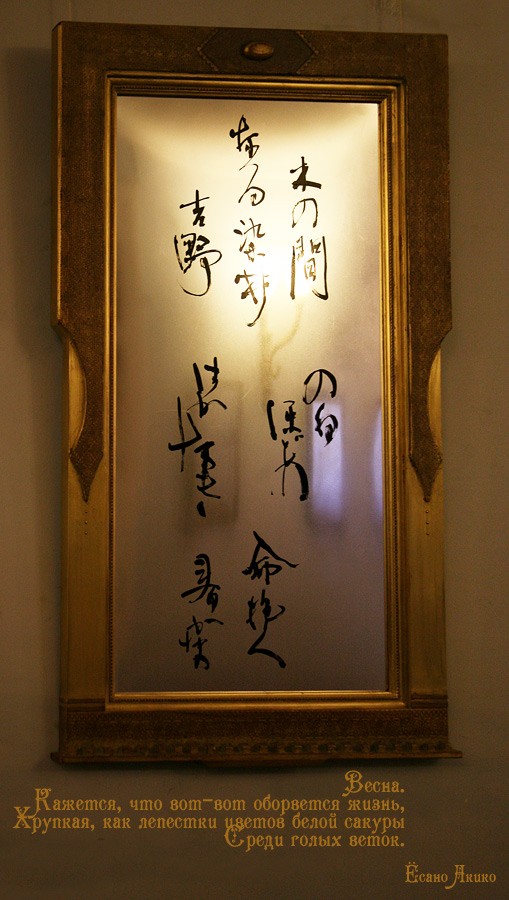 木の間
染井
吉野
の白
命抱く
春
Весна.
Кажется, что вот-вот оборвется жизнь,
Хрупкая, как лепестки цветов белой сакуры
Среди голых веток.
Ёсано Акико